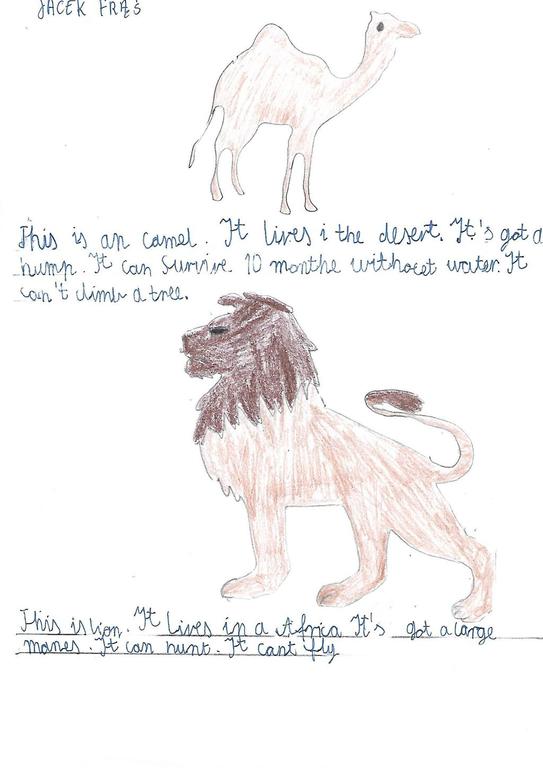 JACEK FRĄŚ
This is an camel. It lives i the desert. It's got a
hump. It can survive 10 monthe without water. It
can't climb a tree.
This is lion. It lives in a Africa It's got a large
manes. It can hunt. It cant fly